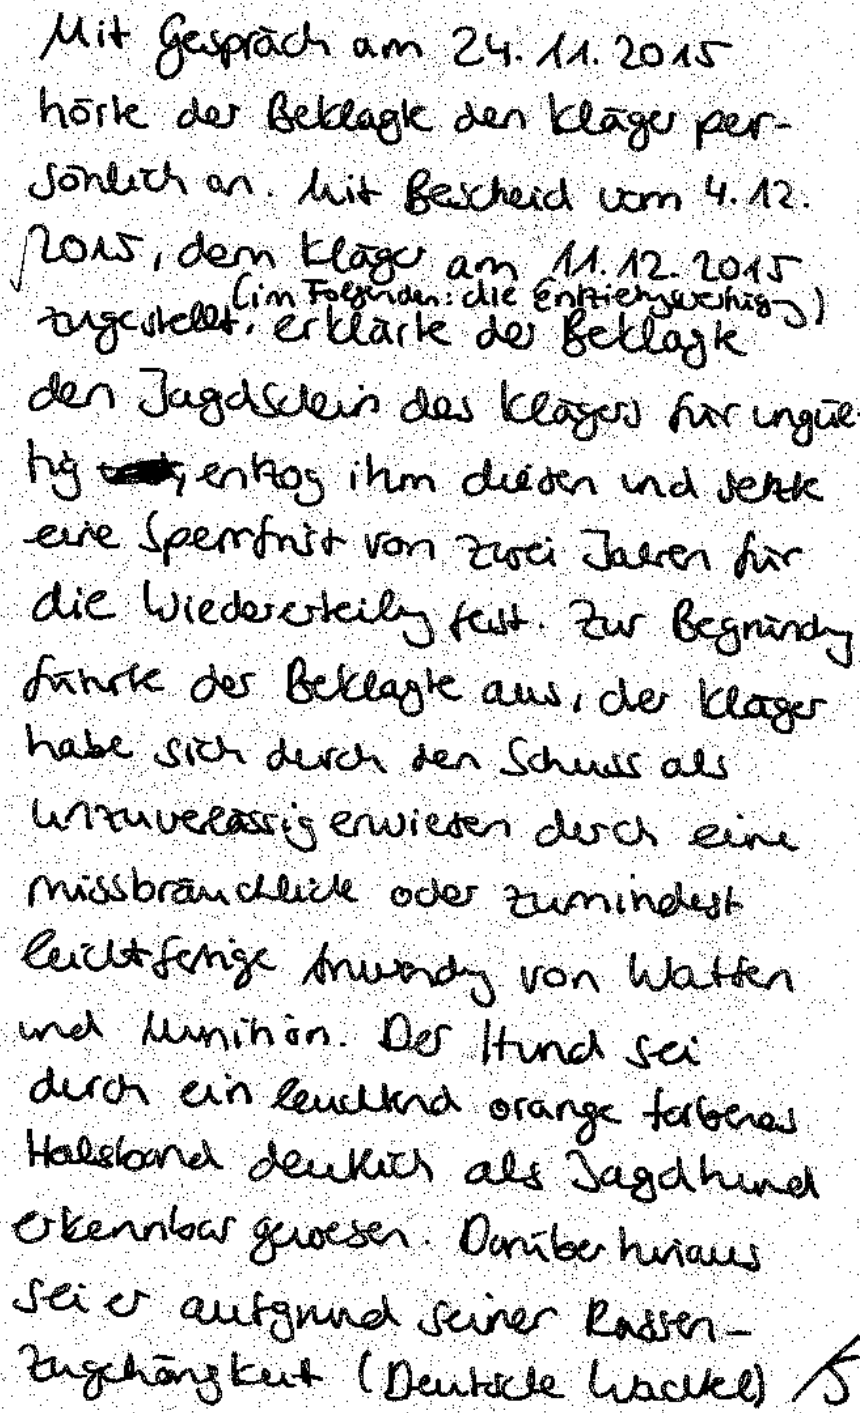 Mit Gespräch am 24.11.2015
hörte der Beklagte den Kläger per-
sönlich an. Mit Bescheid vom 4.12.
2015, dem Kläger am 11.12.2015
(im Folgenden: die Entziehungsverfügung)
zugestellt, erklärte der Beklagte
den Jagdschein des Klägers für ungül-
tig, entzog ihm diesen und setzte
eine Sperrfrist von zwei Jahren für
die Wiedererteilung fest. Zur Begründung
führte der Beklagte aus, der Kläger
habe sich durch den Schuss als
unzuverlässig erwiesen durch eine
missbräuchliche oder zumindest
leichtfertige Anwendung von Waffen
und Munition. Der Hund sei
durch ein leuchtend orange farbenes
Halsband deutlich als Jagdhund
erkennbar gewesen. Darüber hinaus
sei er aufgrund seiner Rassen-
zugehörigkeit (Deutsche Wachtel) /5